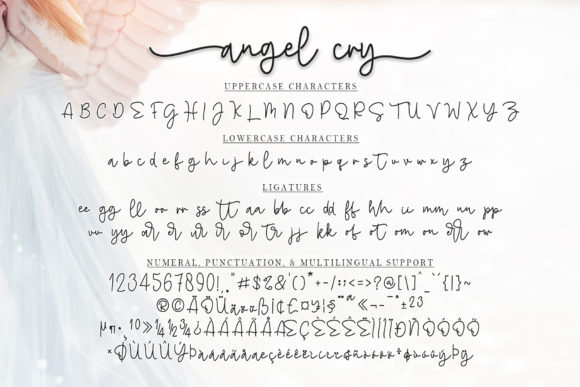 angel cry
UPPERCASE CHARACTERS
A B C D E F G H I J K L M N O P Q R S T U V W X Y Z
LOWERCASE CHARACTERS
a b c d e f g h i j k l m n o p q r s t u v w x y z
LIGATURES
ee gg ll oo rr ss tt aa bb cc dd ff hh ii mm nn pp
uu yy ar er ir or tr jj kk of ot om on ow
NUMERAL, PUNCTUATION, & MULTILINGUAL SUPPORT
1234567890!,."#$%&'()*+-/:;<=>?@[\]^_`{|}~
®©ÄÖÜäöüßi¢£¤¥¦§¨ª«¬-¯°±23
µ¶·¸¹º»¼½¾¿ÀÁÂÃÄÅÆÇÈÉÊËÌÍÎÏÐÑÒÓÔÕÖ
×ØÙÚÛÜÝÞàáâãäåæçèéêëìíîïðñòóôõö÷øùúûüýþ